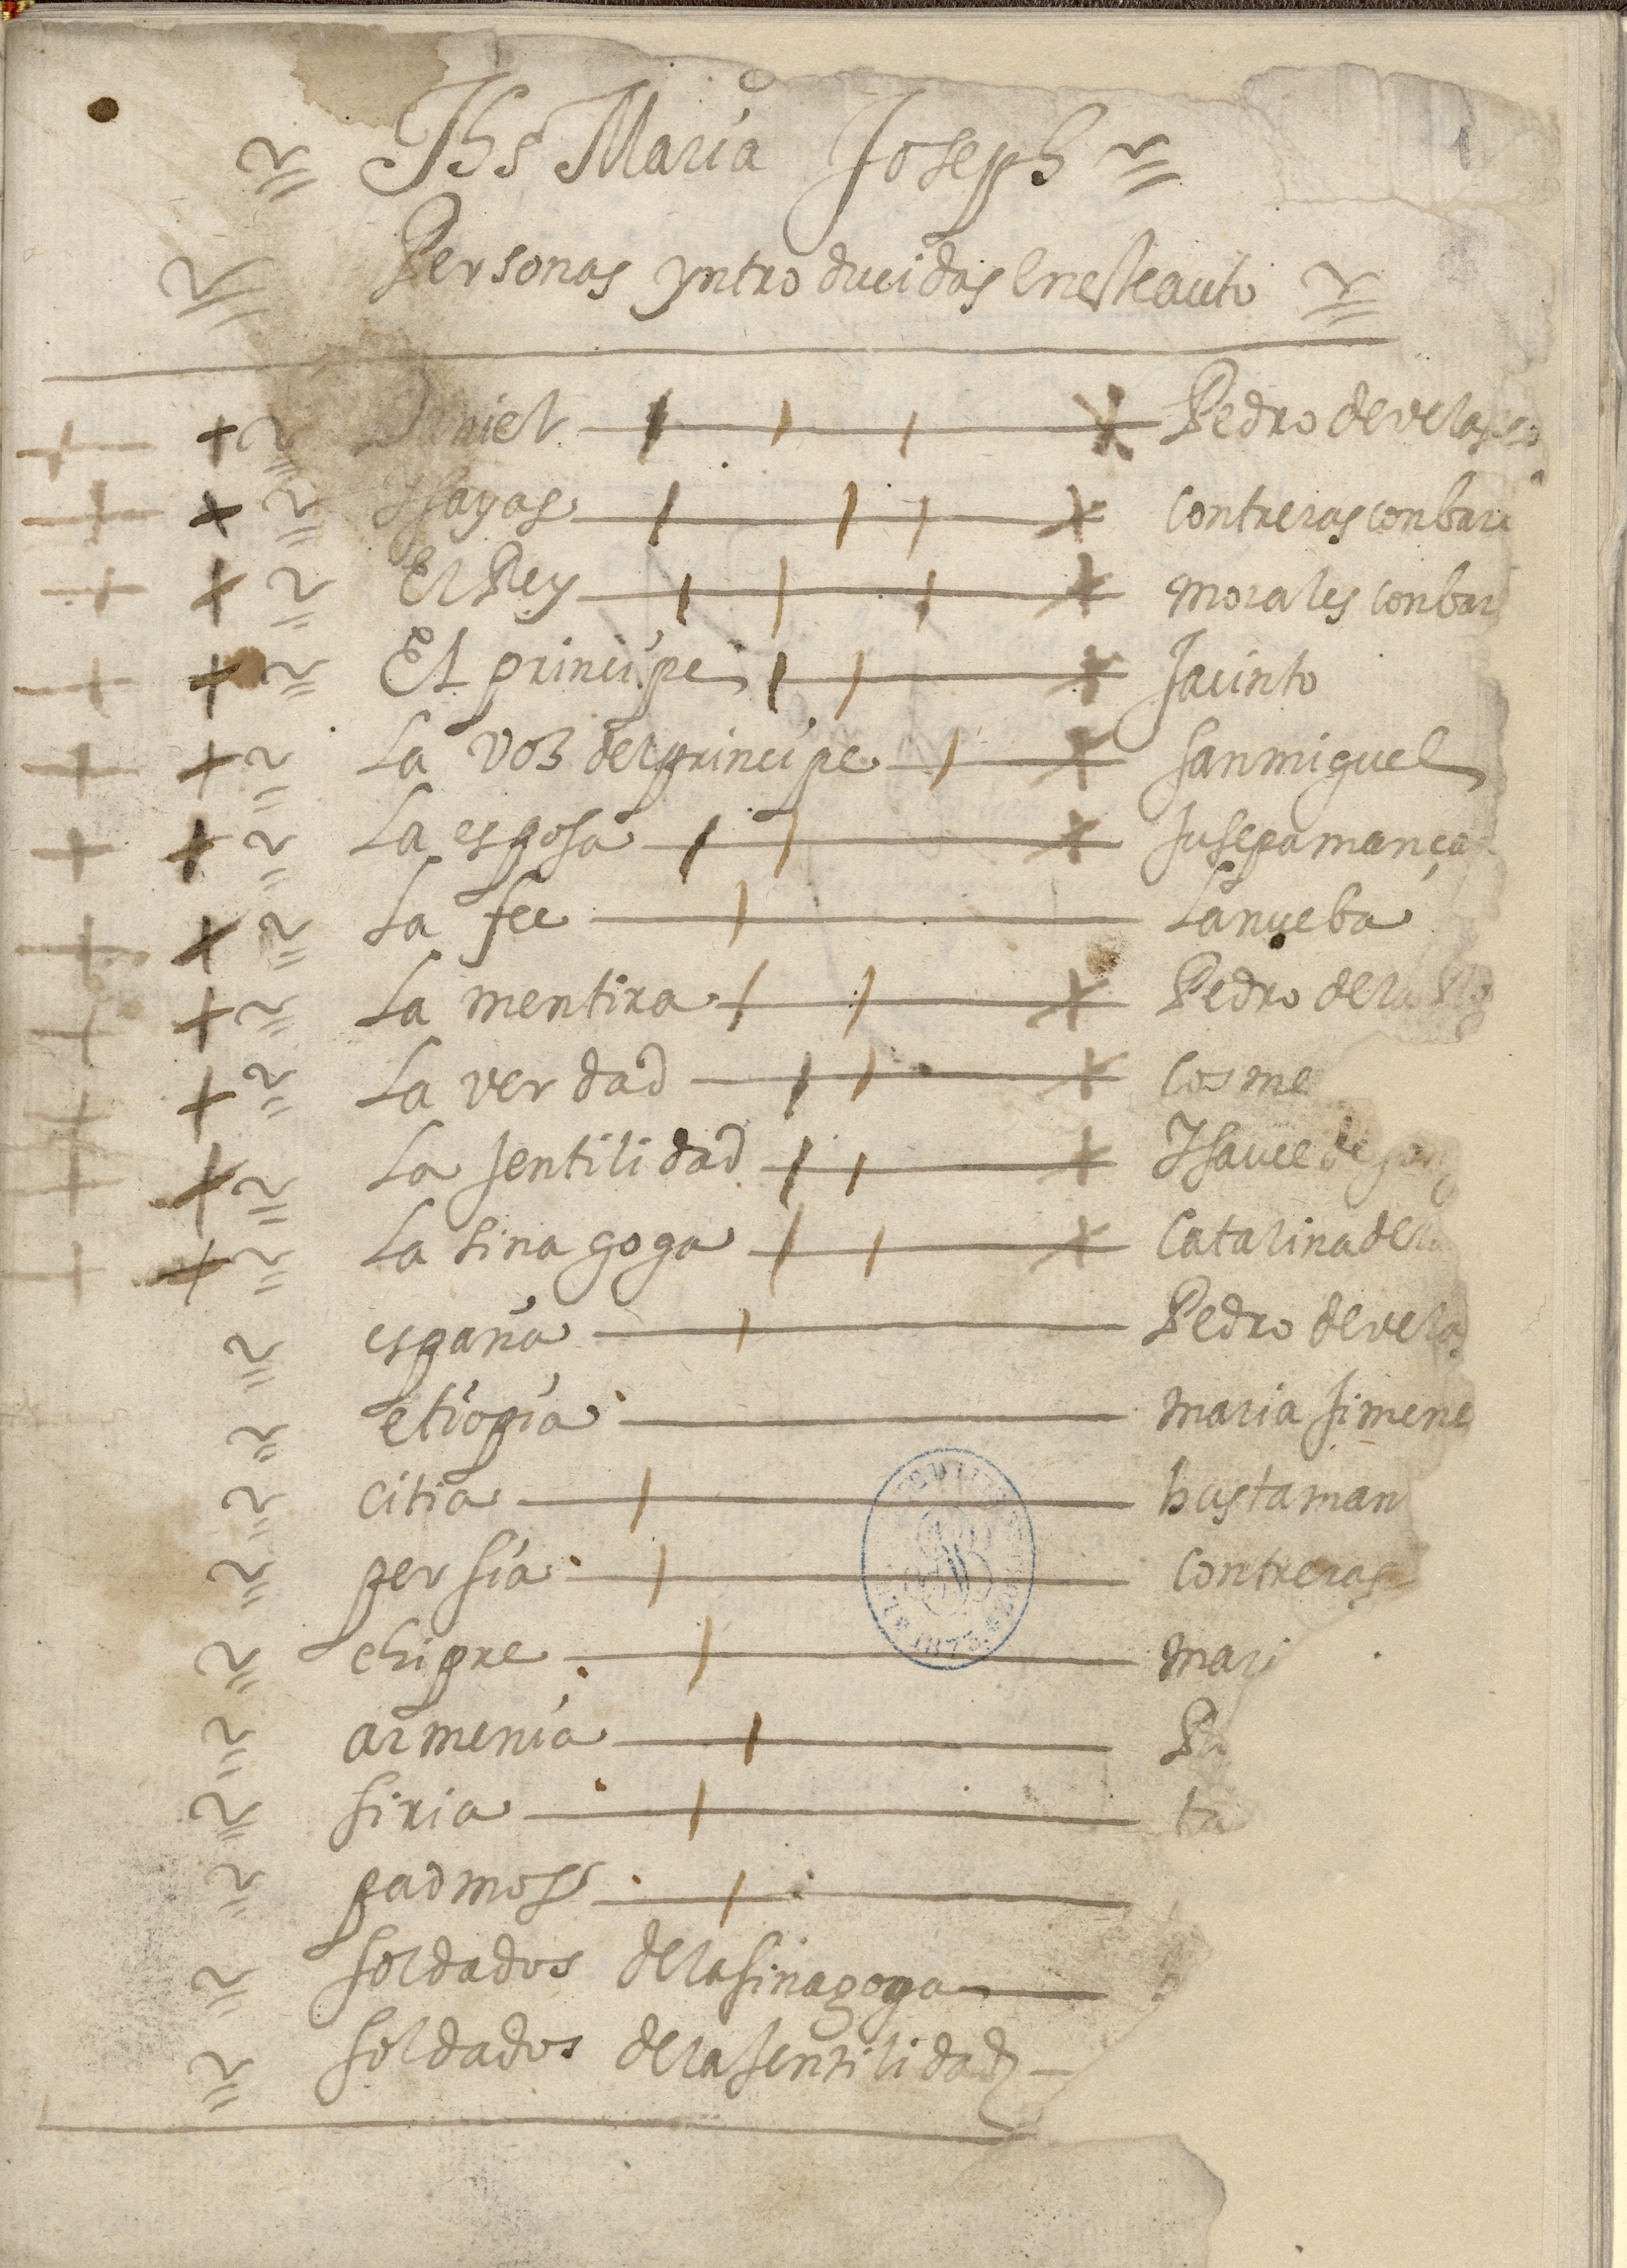 1
Jhs Maria Joseph
Personas yntroducidas eneste auto
Daniel Pedro de velasco
Ysayas contreras con bar
El Rey morales con bar
El principe Jacinto
La voz del principe san miguel
La esposa Jusepa mança
La fee La nueba
La mentira Pedro de la
La verdad cosme
La jentilidad Ysavel de
La sinagoga Catalina de
españa Pedro de velas
etiopia maria jimene
citia bustaman
persia contreras
chipre mar
armenia
siria
padmos
soldados de la sinagoga
soldados de la jentilidad